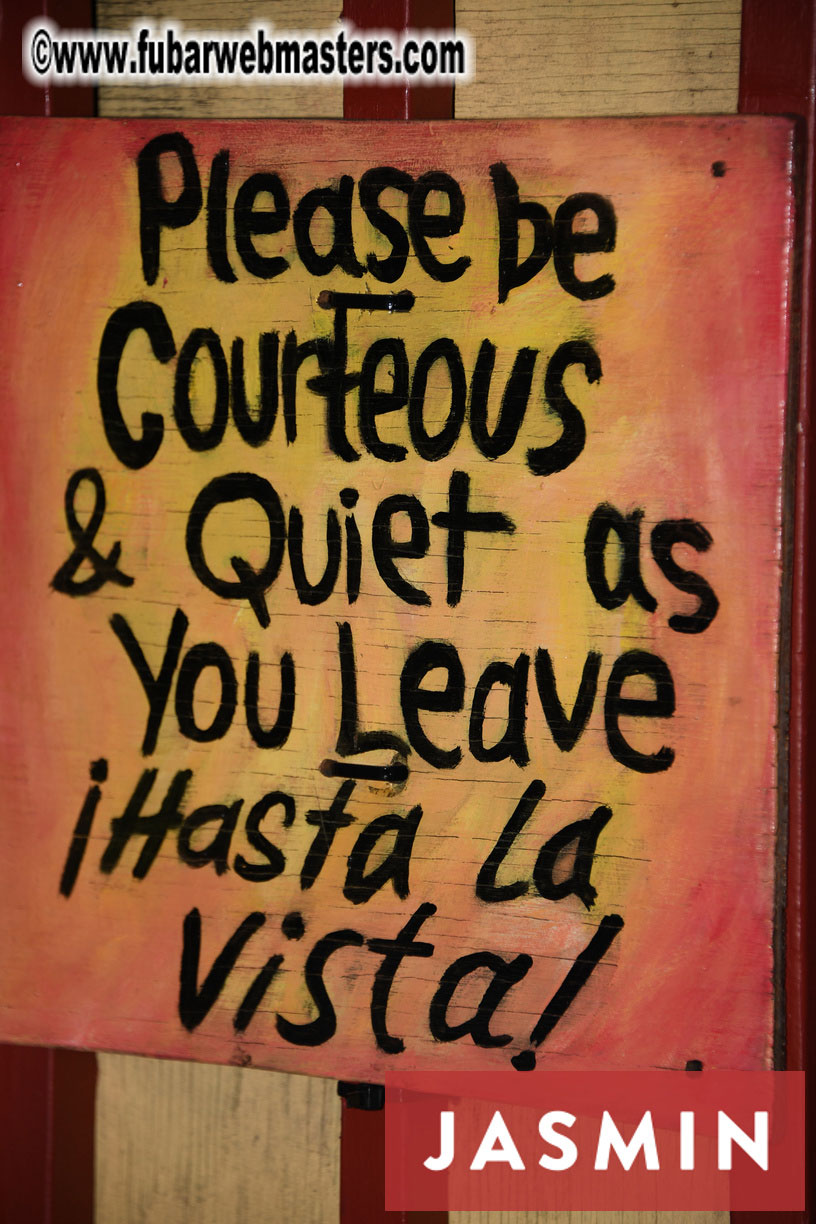 ©www.fubarwebmasters.com
Please be
Courteous
& Quiet as
You Leave
¡Hasta La
Vista!
JASMIN